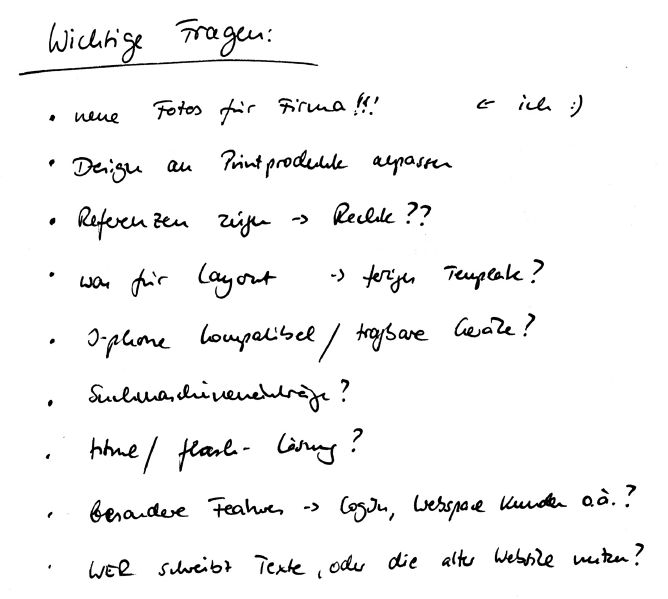 Wichtige Fragen:
• neue Fotos für Firma!!! ← ich :)
• Design an Printprodukte anpassen
• Referenzen zeigen → Rechte??
• was für Layout → fertiges Template?
• I-phone kompatibel / tragbare Geräte?
• Suchmaschineneinträge?
• html / flash- Lösung?
• besondere Features → Login, Webspace Kunden o.ä.?
• WER schreibt Texte, oder die alter Website nutzen?